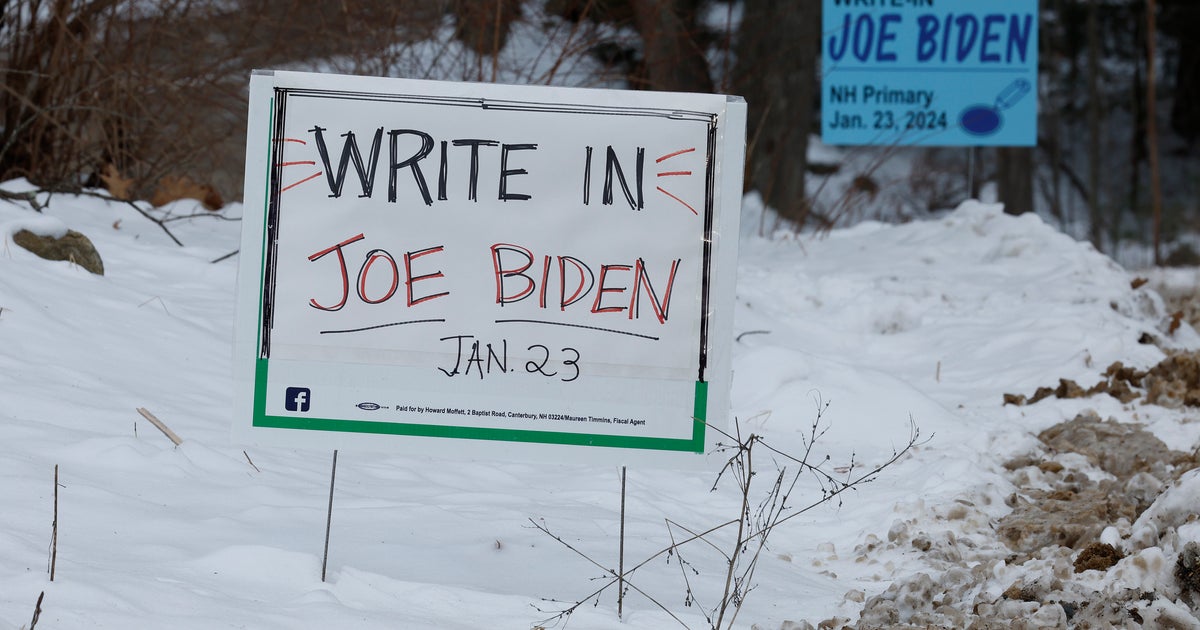 WRITE IN
JOE BIDEN
JAN. 23
f
Paid for by Howard Moffett, 2 Baptist Road, Canterbury, NH 03224/Maureen Timmins, Fiscal Agent
WRITE-IN
JOE BIDEN
NH Primary
Jan. 23, 2024